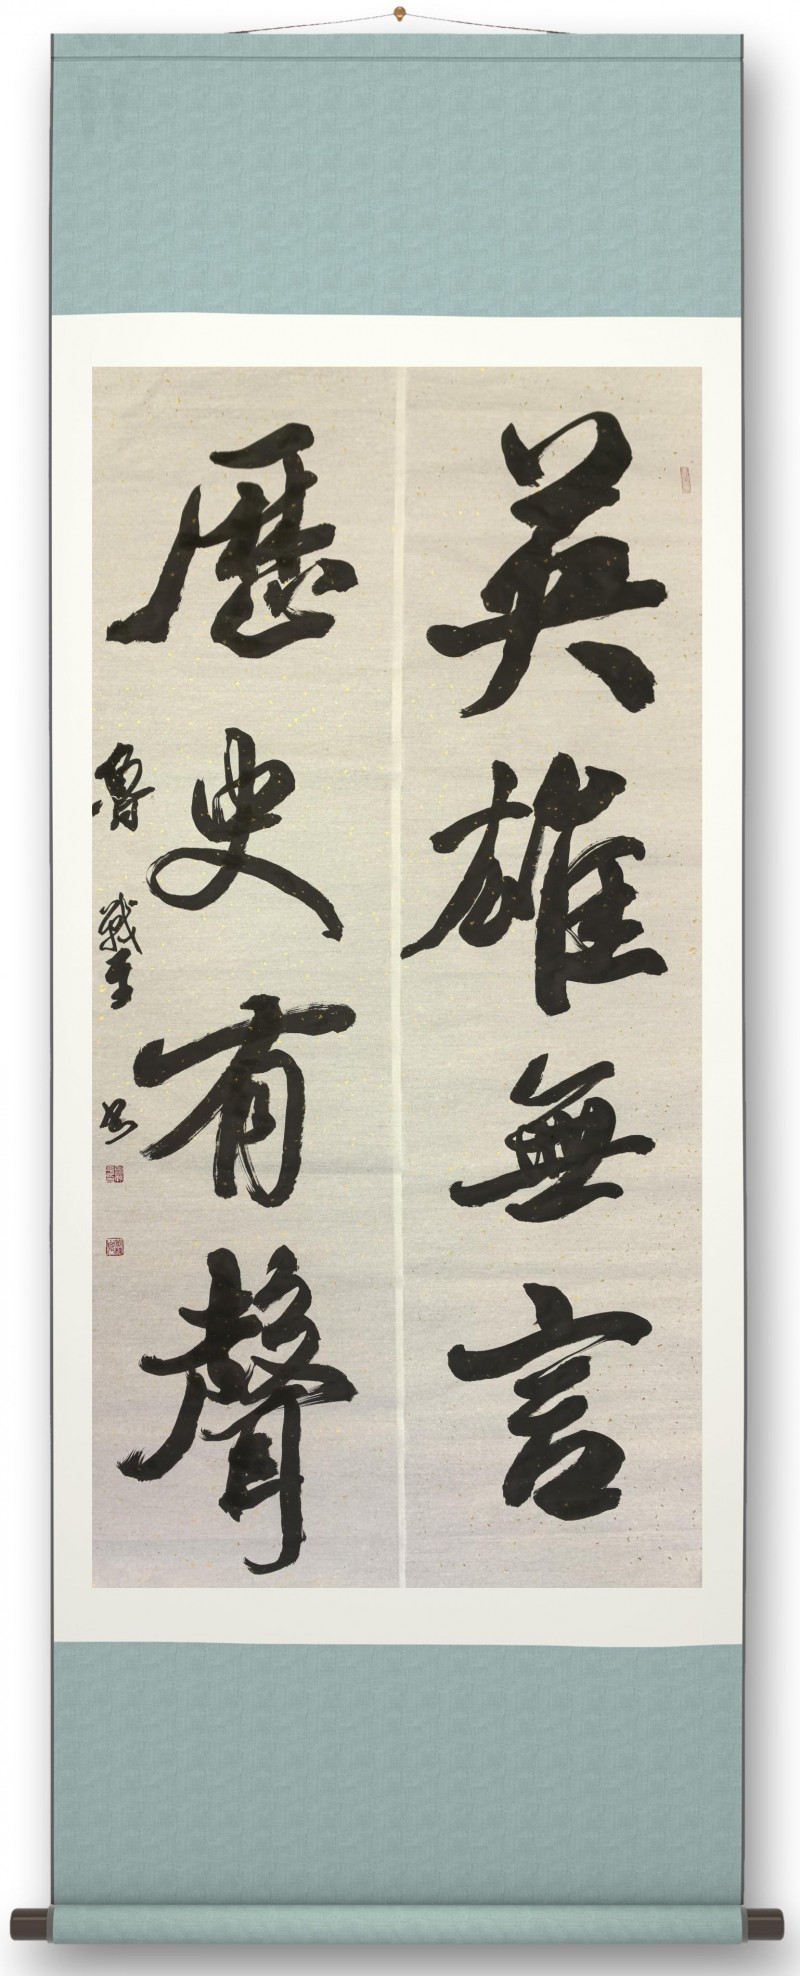 英雄無言
歷史有聲
魯 戰平 书